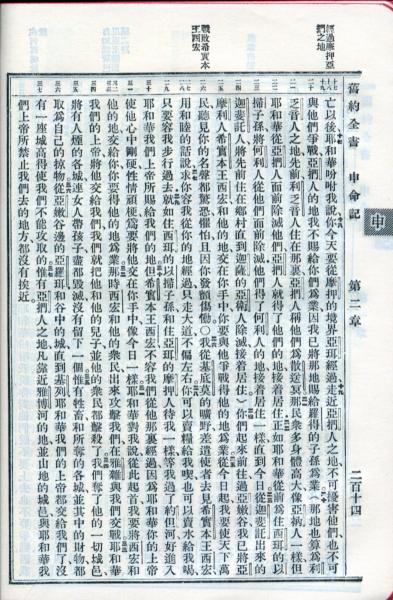 經過摩押亞捫之地
戰敗希實本王西宏
申
舊約全書 申命記 第二章 二百十四
亡以後耶和華吩咐我說你今天要從摩押的境界亞珥經過走近亞捫人之地不可擾害他們也不可
與他們爭戰亞捫人的地我不賜給你們為業因我已將那地賜給羅得的子孫為業（那地也算為利
乏音人之地先前利乏音人住在那裏亞捫人稱他們為散送冥那民眾多身體高大像亞衲人一樣但
耶和華從亞捫人面前除滅他們亞捫人就得了他們的地接着居住正如耶和華從前為住西珥的以
掃子孫將何利人從他們面前除滅他們得了何利人的地接着居住一樣直到今日從迦斐託出來的
迦斐託人將先前住在鄉村直到迦薩的亞衛人除滅接着居住）你們起來前往過亞嫩谷我已將亞
摩利人希實本王西宏和他的地交在你手中你要與他爭戰得他的地為業從今日起我要使天下萬
民聽見你的名聲都驚恐懼怕且因你發顫傷慟〇我從基底莫的曠野差遣使者去見希實本王西宏
用和睦的話說求你容我從你的地經過只走大道不偏左右你可以賣糧給我喫也可以賣水給我喝
只要容我步行過去就如住西珥的以掃子孫和住亞珥的摩押人待我一樣等我過了約但河好進入
耶和華我們上帝所賜給我們的地但希實本王西宏不容我們從他那裏經過因為耶和華你的上帝
使他心中剛硬性情頑梗為要將他交在你手中像今日一樣耶和華對我說從此起首我要將西宏和
他的地交給你你要得他的地為業那時西宏和他的眾民出來攻擊我們在雅雜與我們交戰耶和華
我們的上帝將他交給我們我們就把他和他的兒子並他的眾民都擊殺了我們奪了他的一切城邑
將有人煙的各城連女人帶孩子盡都毀滅沒有留下一個惟有牲畜和所奪的各城並其中的財物都
取為自己的掠物從亞嫩谷邊的亞羅珥和谷中的城直到基列耶和華我們的上帝都交給我們了沒
有一座城高得使我們不能攻取的惟有亞捫人之地凡靠近雅博河的地並山地的城邑與耶和華我
們上帝所禁止我們去的地方都沒有挨近